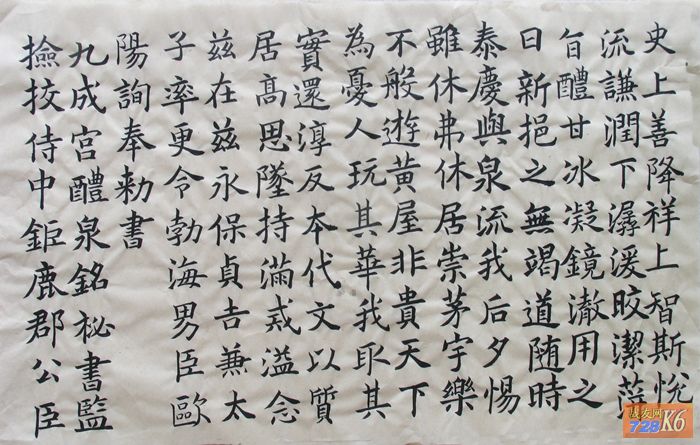 史上善降祥上智斯悅
流謙潤下潺湲皎潔蓱
旨醴甘冰凝鏡澈用之
日新挹之無竭道随時
泰慶與泉流我后夕惕
雖休弗休居崇茅宇樂
不般遊黃屋非貴天下
為憂人玩其華我取其
實還淳反本代文以質
居高思墜持滿戒溢念
茲在茲永保貞吉兼太
子率更令勃海男臣歐
陽詢奉勅書
九成宮醴泉銘秘書監
撿挍侍中鉅鹿郡公臣
728
K6